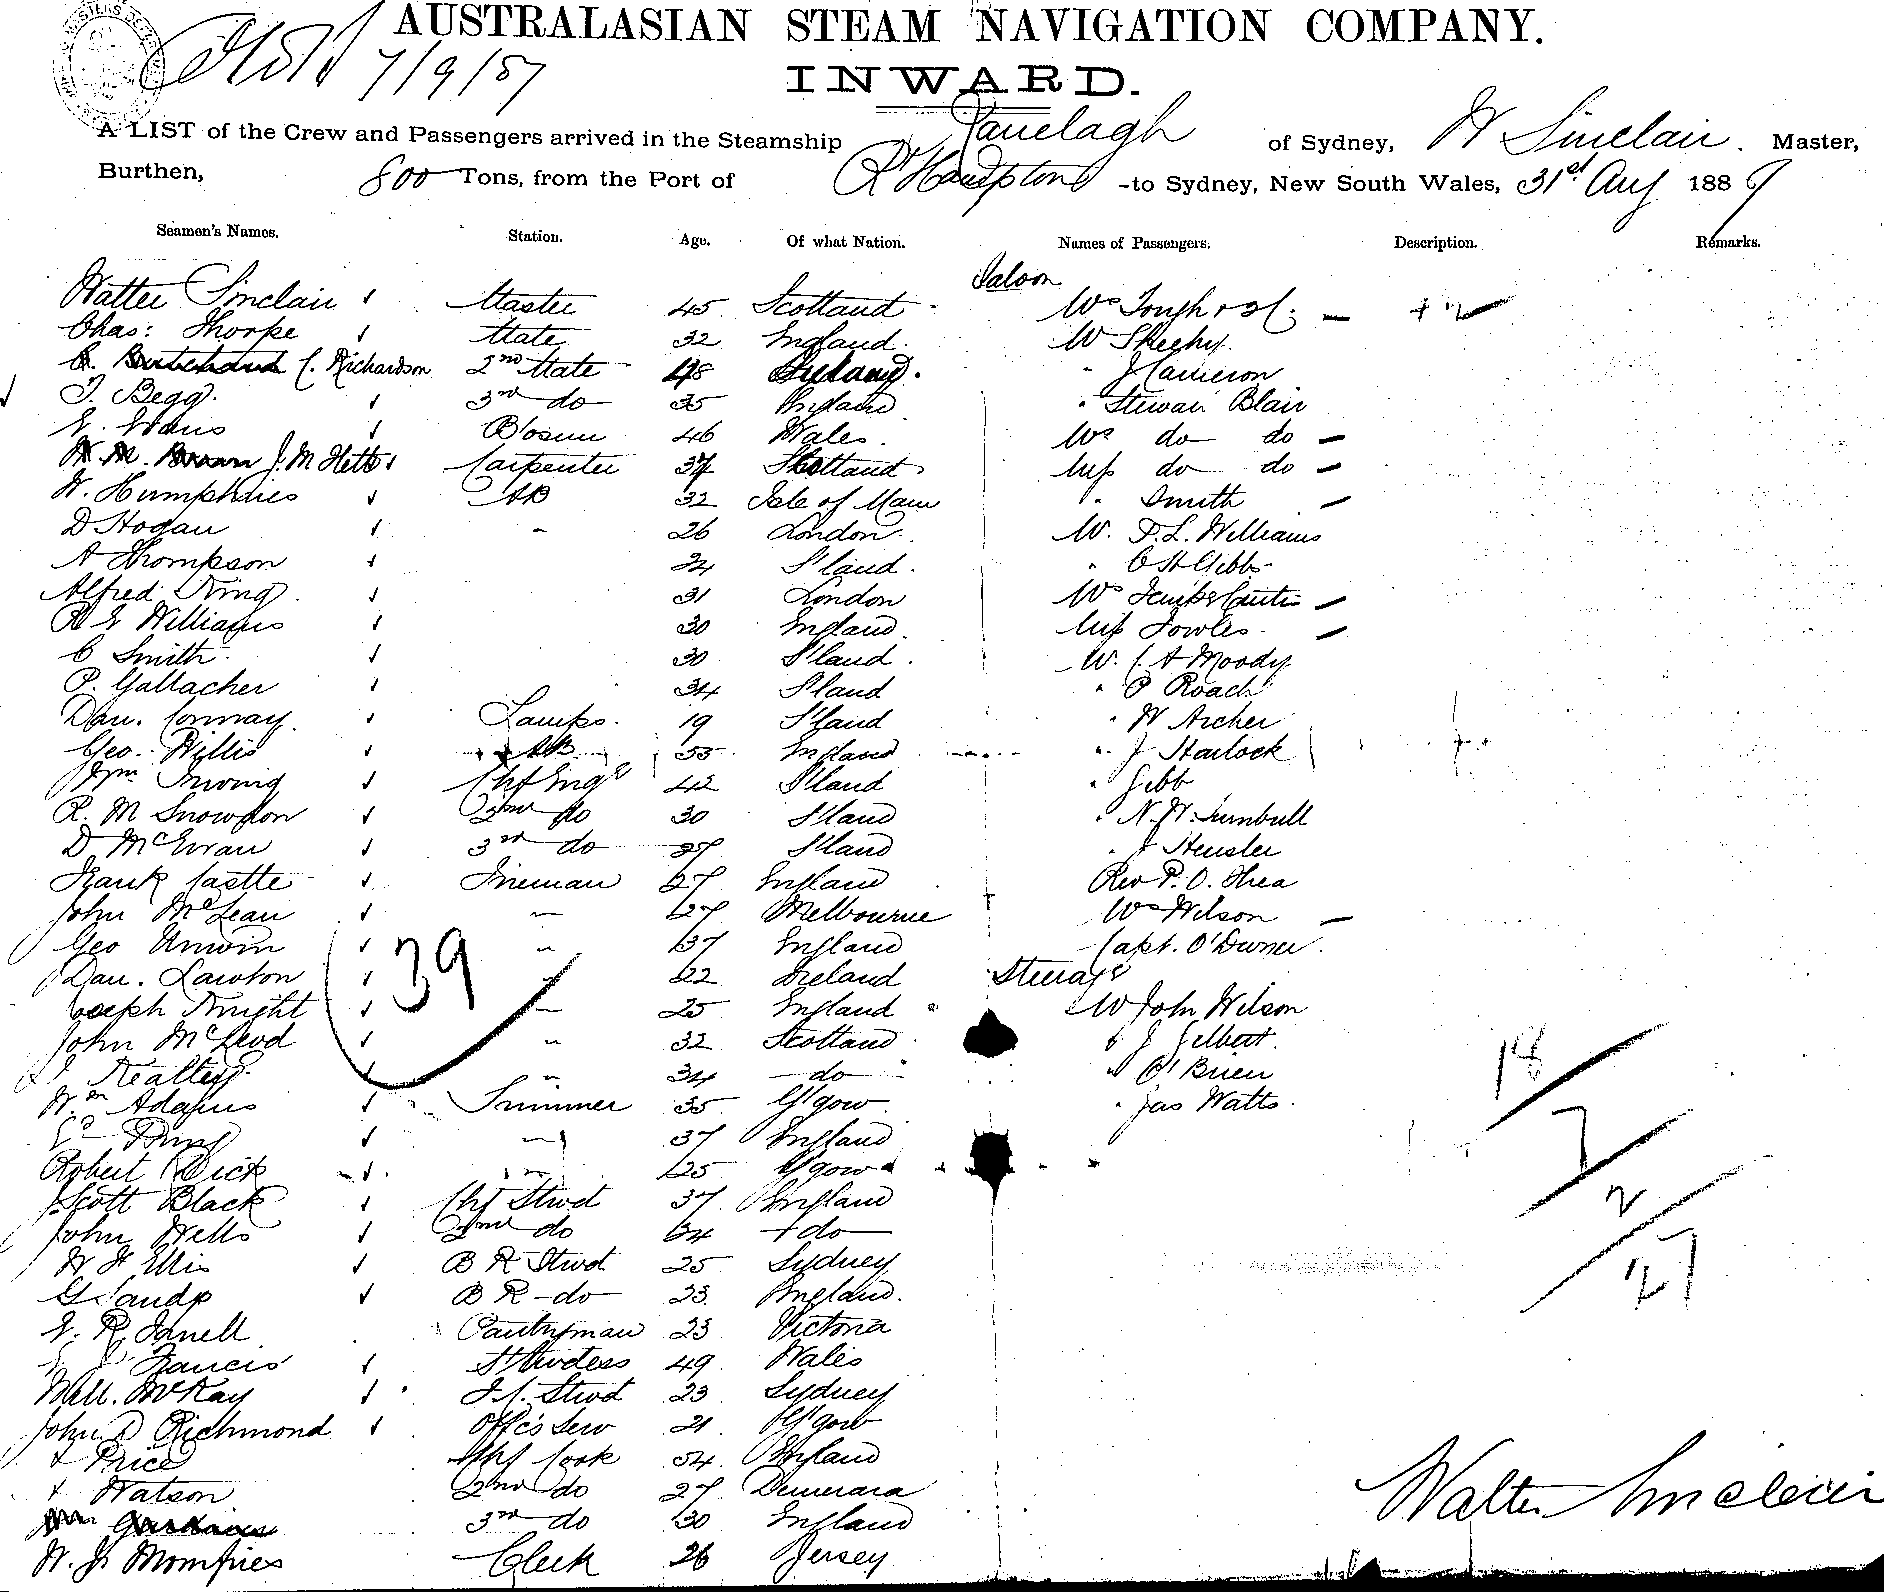 AUSTRALASIAN STEAM NAVIGATION COMPANY.
7/9/87
INWARD.
A LIST of the Crew and Passengers arrived in the Steamship Ranelagh of Sydney, W Sinclair. Master,
Burthen, 800 Tons, from the Port of -to Sydney, New South Wales, 31st Aug 188
Seamen's Names. Station. Age. Of what Nation. Names of Passengers. Description. Remarks.
Saloon
Walter Sinclair Master 45 Scotland
Chas: Thorpe Mate 32 England. W Sheehy.
C. Richardson 2nd Mate 48 J Cameron
T. Begg. 3rd do 35 England Stewart Blair
E. Evans Bosun 46 Wales. do do
J. M Carpenter 37 Scotland do do
W. Humphries AB 32 Isle of Man Smith
D Hogan " 26 London W. T. L. Williams
A Thompson 24 S'land. C H Gibbs
Alfred King 31 London
R E Williams 30 England. Miss Fowles
C Smith 30 S'land. W. C. A Moody
P. Gallacher 34 S'land P Roach
Dan. Conway. Lamps. 19 S'land W Archer
Geo. Willis AB 55 England J Harlock
Wm 42 S'land Gibb
R. M Snowdon 2nd do 30 S'land N. W. Turnbull
D McEwan 3rd do 27 S'land J Hensler
Frank Castle Fireman 27 England Rev P. O. Shea
John McLean " 27 Melbourne Wilson
Geo Unwin " 37 England Capt. O'Dwner.
Dan. Lawton " 22 Ireland Steerage
39
Joseph Knight " 25 England John Wilson
John McLeod " 32 Scotland J Gilbert.
" 34 do O'Brien
18
Wm Adams Trimmer 35 G'gow Jas Watts.
7
" 37 England
Robert Dick " 25 G'gow
Scott Black Chf Stwd 37 England
2
John Wells 2nd do 34 do
W H Ellis B R Stwd 25 Sydney
27
G Sands B R do 23 England.
Pantryman 23 Victoria
Francis Stwdess 49 Wales
McKay Stwd 23 Sydney
John D Richmond Offc's Serv 21 G'gow
Price Chf Cook 54 England
Watson 2nd do 27 Demerara
Walter Sinclair
3rd do 30 England
W. J. Momfries Clerk 26 Jersey